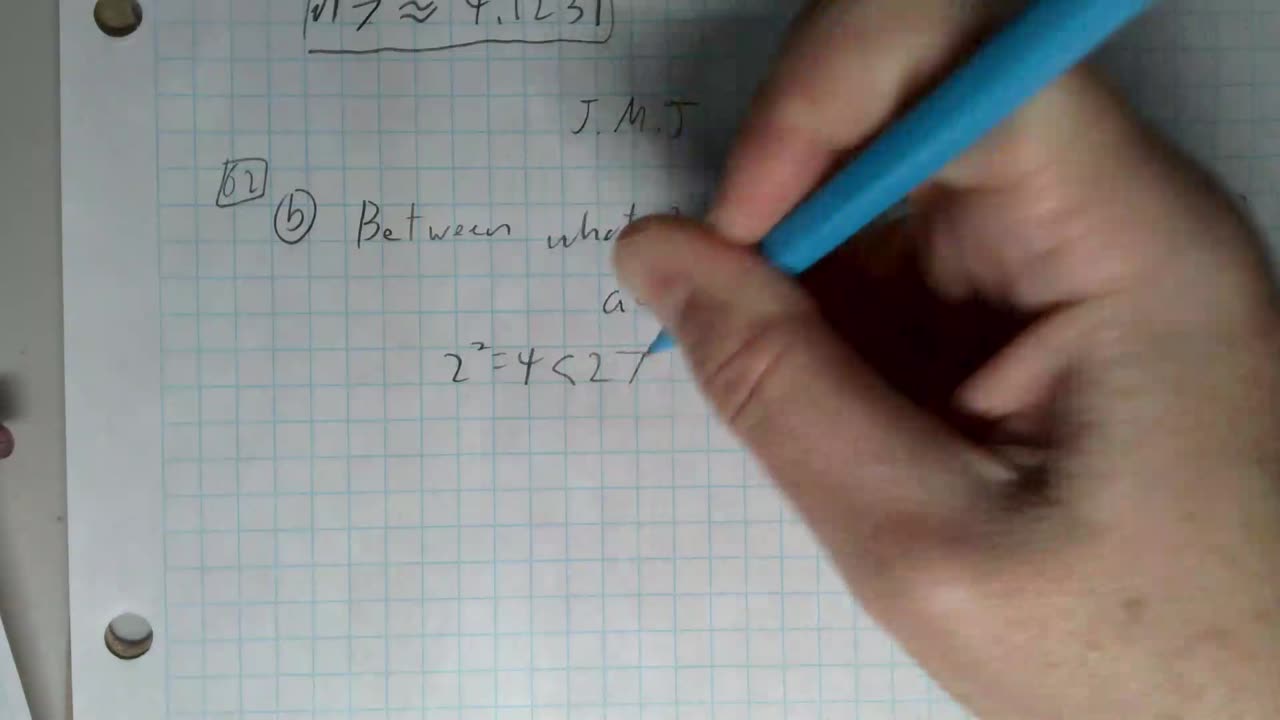 √17 ≈ 4.1231
J.M.J
62
b Between what
a
2²=4<27